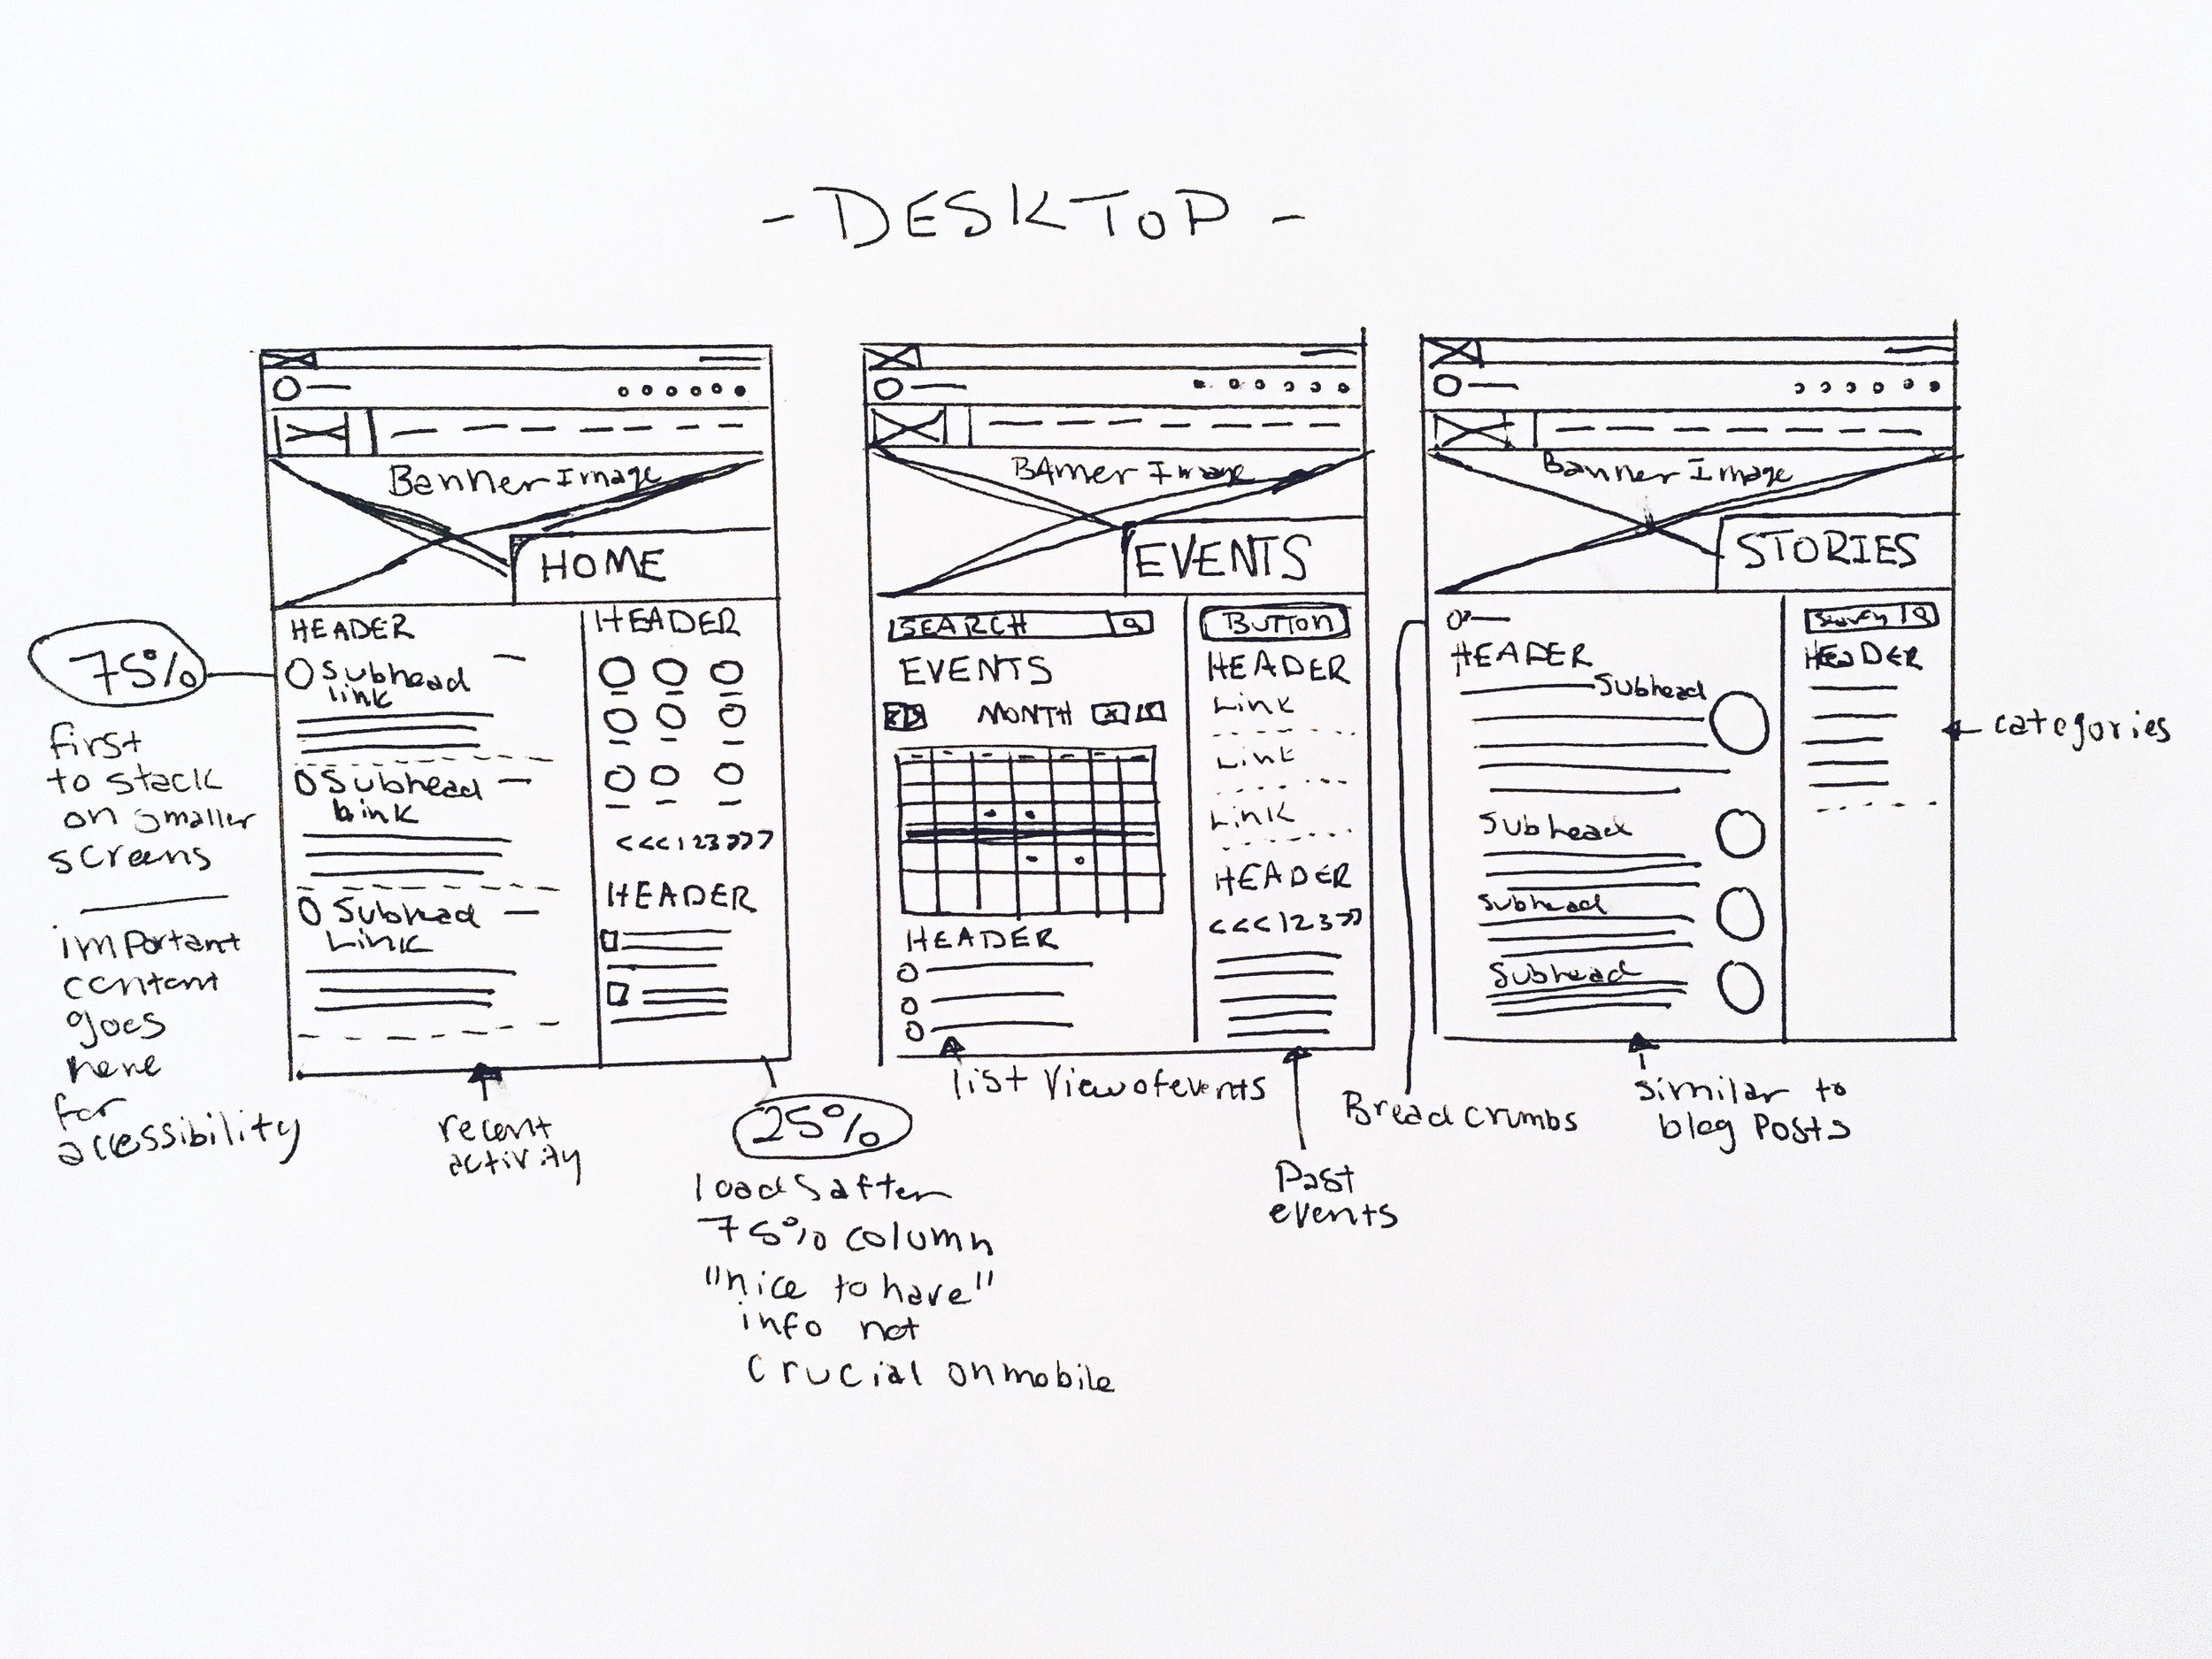 - DESKTOP -
Banner Image
HOME
HEADER
Subhead
link
Subhead
Link
Subhead
Link
HEADER
<<<123>>>
HEADER
75%
first
to stack
on smaller
screens
important
content
goes
here
for
accessibility
recent
activity
25%
loads after
75% column
"nice to have"
info not
crucial on mobile
BAnner Image
EVENTS
SEARCH
EVENTS
MONTH
HEADER
BUTTON
HEADER
Link
Link
Link
HEADER
<<<123>>
list view of events
Past
events
Banner Image
STORIES
HEADER
Subhead
Subhead
Subhead
Subhead
Search
HEADER
categories
Breadcrumbs
similar to
blog Posts